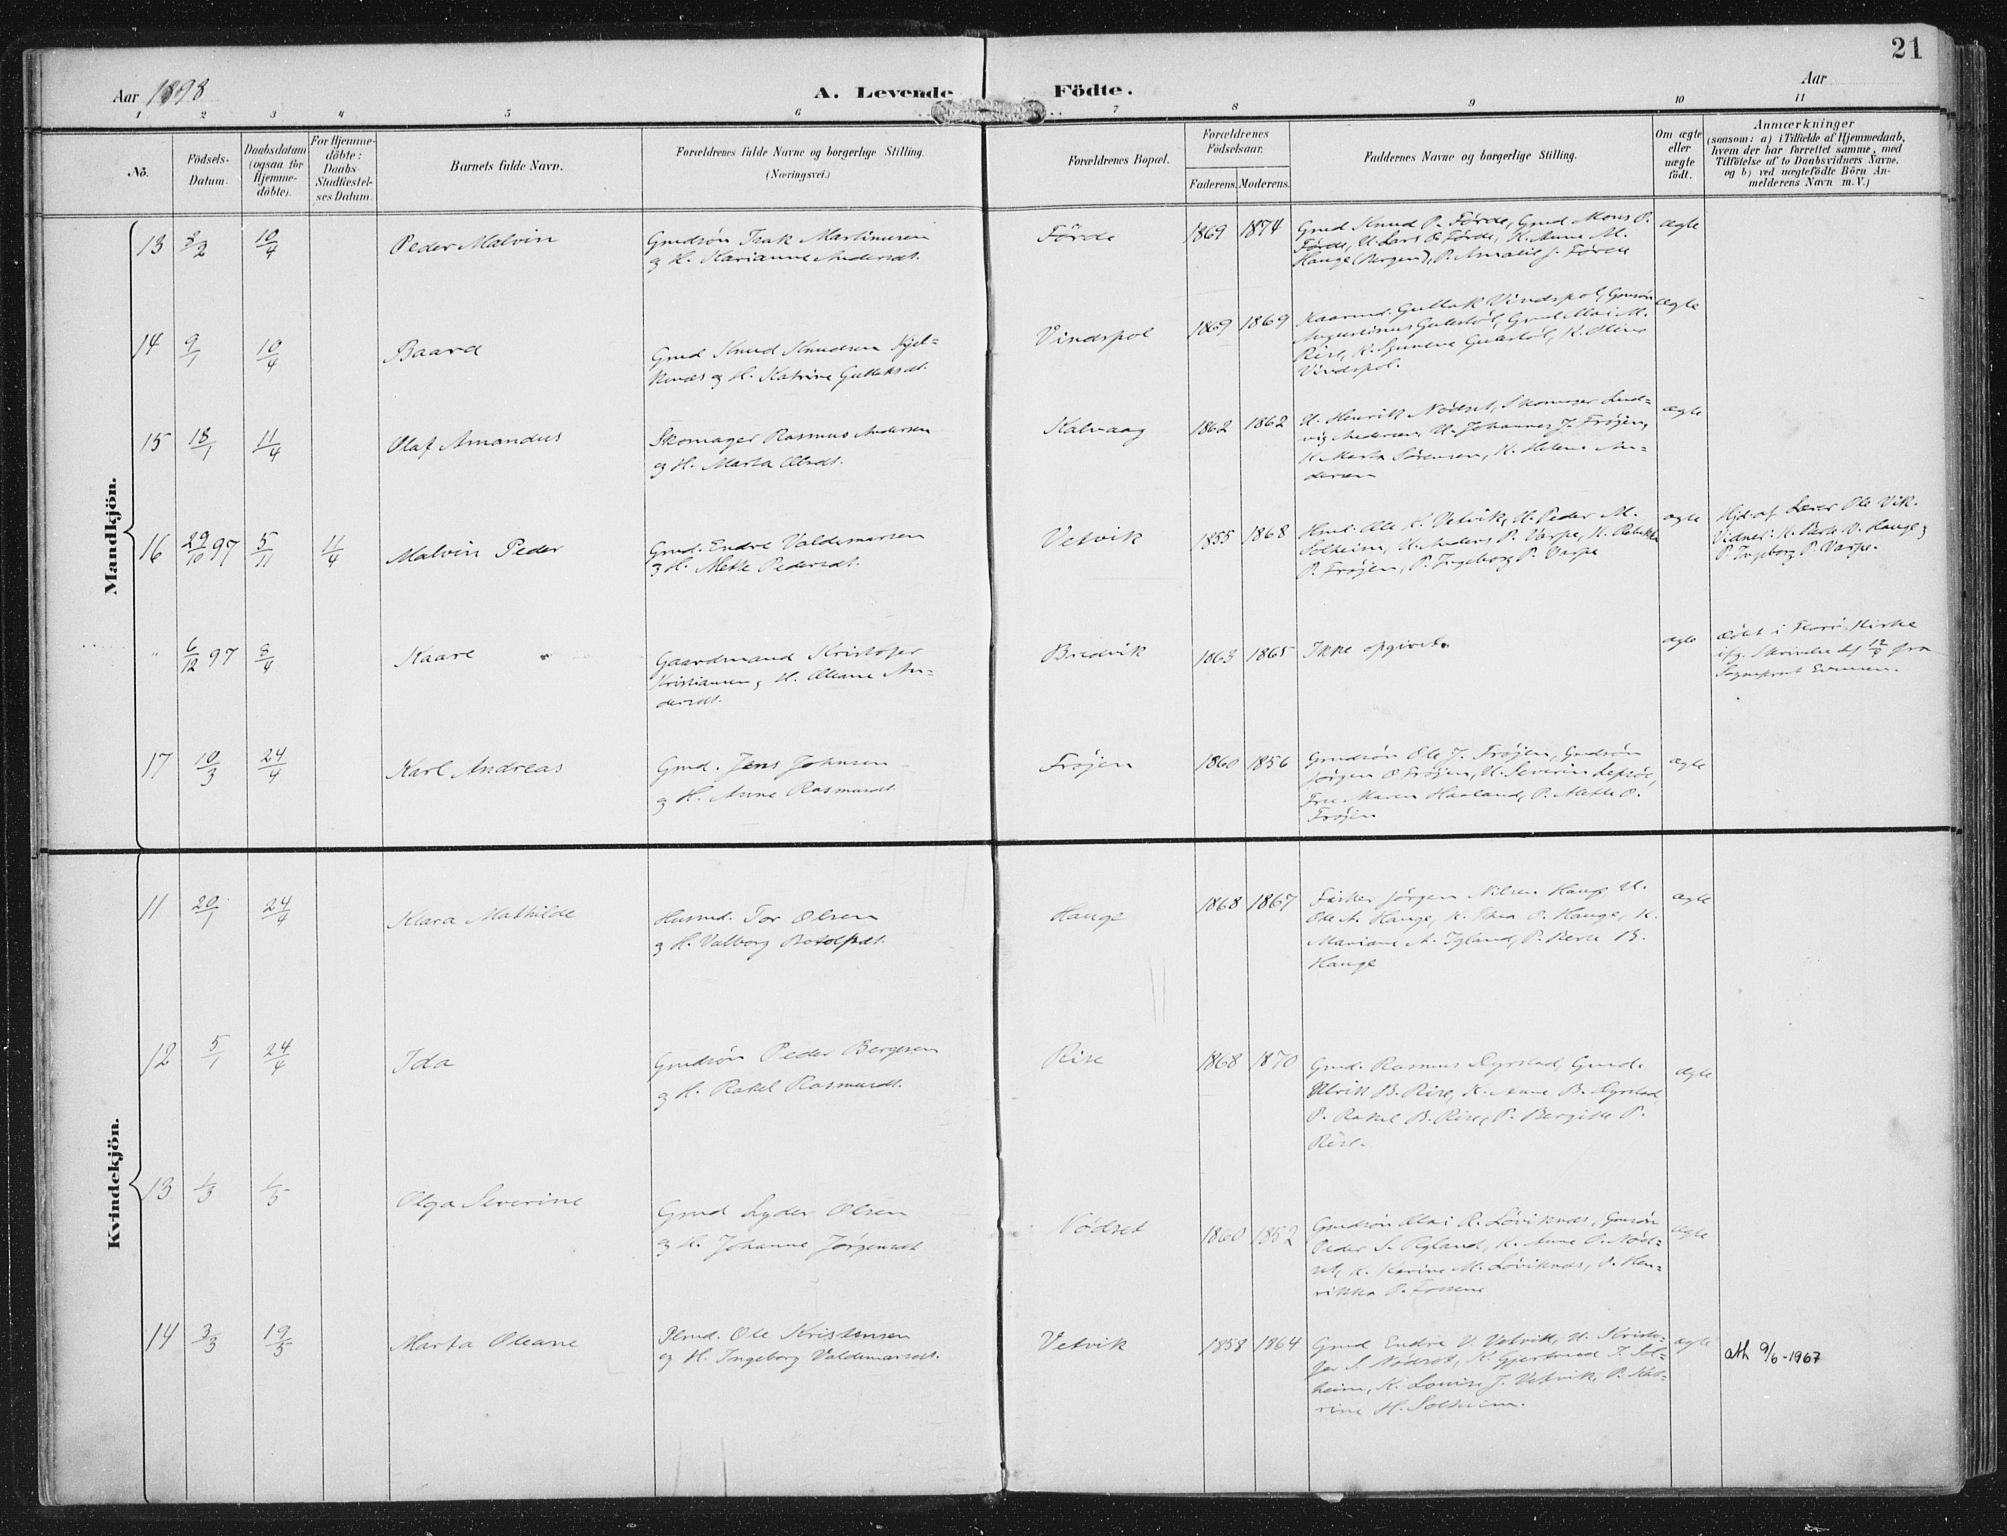 21
Aar 1898
A. Levende
Födte.
Aar
1 2 3 4 5 6 7 8 9 10 11
No.
Födsels-
Datum.
Daabsdatum
(ogsaa for
Hjemme-
döbte).
For Hjemme-
döbte:
Daabs-
Stadfæstel-
ses Datum.
Barnets fulde Navn.
Forældrenes fulde Navne og borgerlige Stilling.
(Næringsvei.)
Forældrenes Bopæl.
Forældrenes
Födselsaar.
Faderens.
Moderens.
Faddernes Navne og borgerlige Stilling.
Om ægte
eller
uægte
födt.
Anmærkninger
(saasom: a) i Tilfælde af Hjemmedaab,
hvem der har forrettet samme, med
Tilföielse af to Daabsvidners Navne.
og b) ved uægtefödte Börn An-
melderens Navn m. V.)
Mandkjön.
13 3/2 10/4 Peder Malvin
Gmdsøn Isak Martinusen
og H. Karianne Andersdt.
Førde 1869 1874
Gmd Knud P. Førde, Gmd Mons P.
Førde, U. Lars O Førde, K. Anne M.
Hauge (Bergen), P. Amalie J. Førde
ægte
14 9/1 10/4 Baard
Gmd Knud Knudsen Hjel-
mnes og H. Katrine Gulleksdt.
Vindspol 1869 1869
Kaarmd. Gullak Vindspol, Gmsøn
Augustinus Gulestøl, Gmd M.
Rise, K. Gulestøl, K. Oline
Vindspol.
ægte
15 18/1 11/4 Olaf Amandus
Skomager Rasmus Andersen
og H. Marta Olsdt.
Kalvaag 1862 1862
U. Henrik Nødset, Skomager Lud-
vig Andersen, U. Johannes J. Frøjen,
K Marta Sørensen, K. Helene An-
dersen
ægte
16 29/10 97 5/11 11/4 Malvin Peder
Gmd. Endre Valdemarsen
og H. Mette Pedersdt.
Vetvik 1855 1868
Hmd. Ole K. Vetvik, U. Peder M.
Solheim, U. Anders P. Varpe, K. Rebekka
P. Frøjen, P. Ingeborg P. Varpe
ægte
Hjd. af Lærer Ole Vik.
Vidner: K. Berte V. Hauge og
P. Ingeborg P. Varpe.
" 6/12 97 8/4 Kaare
Gaardmand Kristofer
Kristiansen og H. Oleane An-
dersdt.
Bredvik 1863 1865
Ikke opgivet.
ægte
døbt i Florø Kirke
ifg. Skrivelse af 12/4 fra
Sogneprest
17 10/3 24/4 Karl Andreas
Gmd. Jens Johnsen
og H. Anne Rasmusdt.
Frøjen 1860 1856
Gmdsøn Ole J. Frøjen, Gmdsøn
Jørgen O Frøjen, U. Severin
Fru Maren Haaland, P. Mette O.
Frøjen
ægte
Kvindekjön.
11 20/1 24/4 Klara Mathilde
Husmd. Tor Olsen
og H. Valborg Botolfsdt.
Hauge 1868 1867
Fisker Jørgen Nilsen Hauge, U.
Ole A. Hauge, K. Thea O. Hauge, K.
Mariane A. Igland, P. Berte B.
Hauge
ægte
12 5/1 24/4 Ida
Gmdsøn Peder Bergesen
og H. Rakel Rasmusdt.
Rise 1868 1870
Gmd. Rasmus Myrstad, Gmd.
Ulrik B. Rise, K. Anne B. Myrstad,
P. Rakel B. Rise, P. Bergitte P.
Rise.
ægte
13 1/3 1/5 Olga Severine
Gmd Lyder Olsen
og H. Johanne Jørgensdt
Nødset 1860 1852
Gmdsøn R. Løviknes, Gmsøn
Peder S. Ryland, K. Anne O. Nød-
set, K. Karine M. Løviknes, P. Hen-
rikka P.
ægte
14 3/3 19/5 Marta Oleane
Plmd. Ole Kristensen
og H. Ingeborg Valdemarsdt.
Vetvik 1858 1864
Gmd Endre V. Vetvik, U. Kristo-
fer S. Nødset, K. Gjertrud T. Sol-
heim, K. Lovise J. Vetvik, P. Kat-
rine H. Solheim.
ægte
ath 9/6-1967